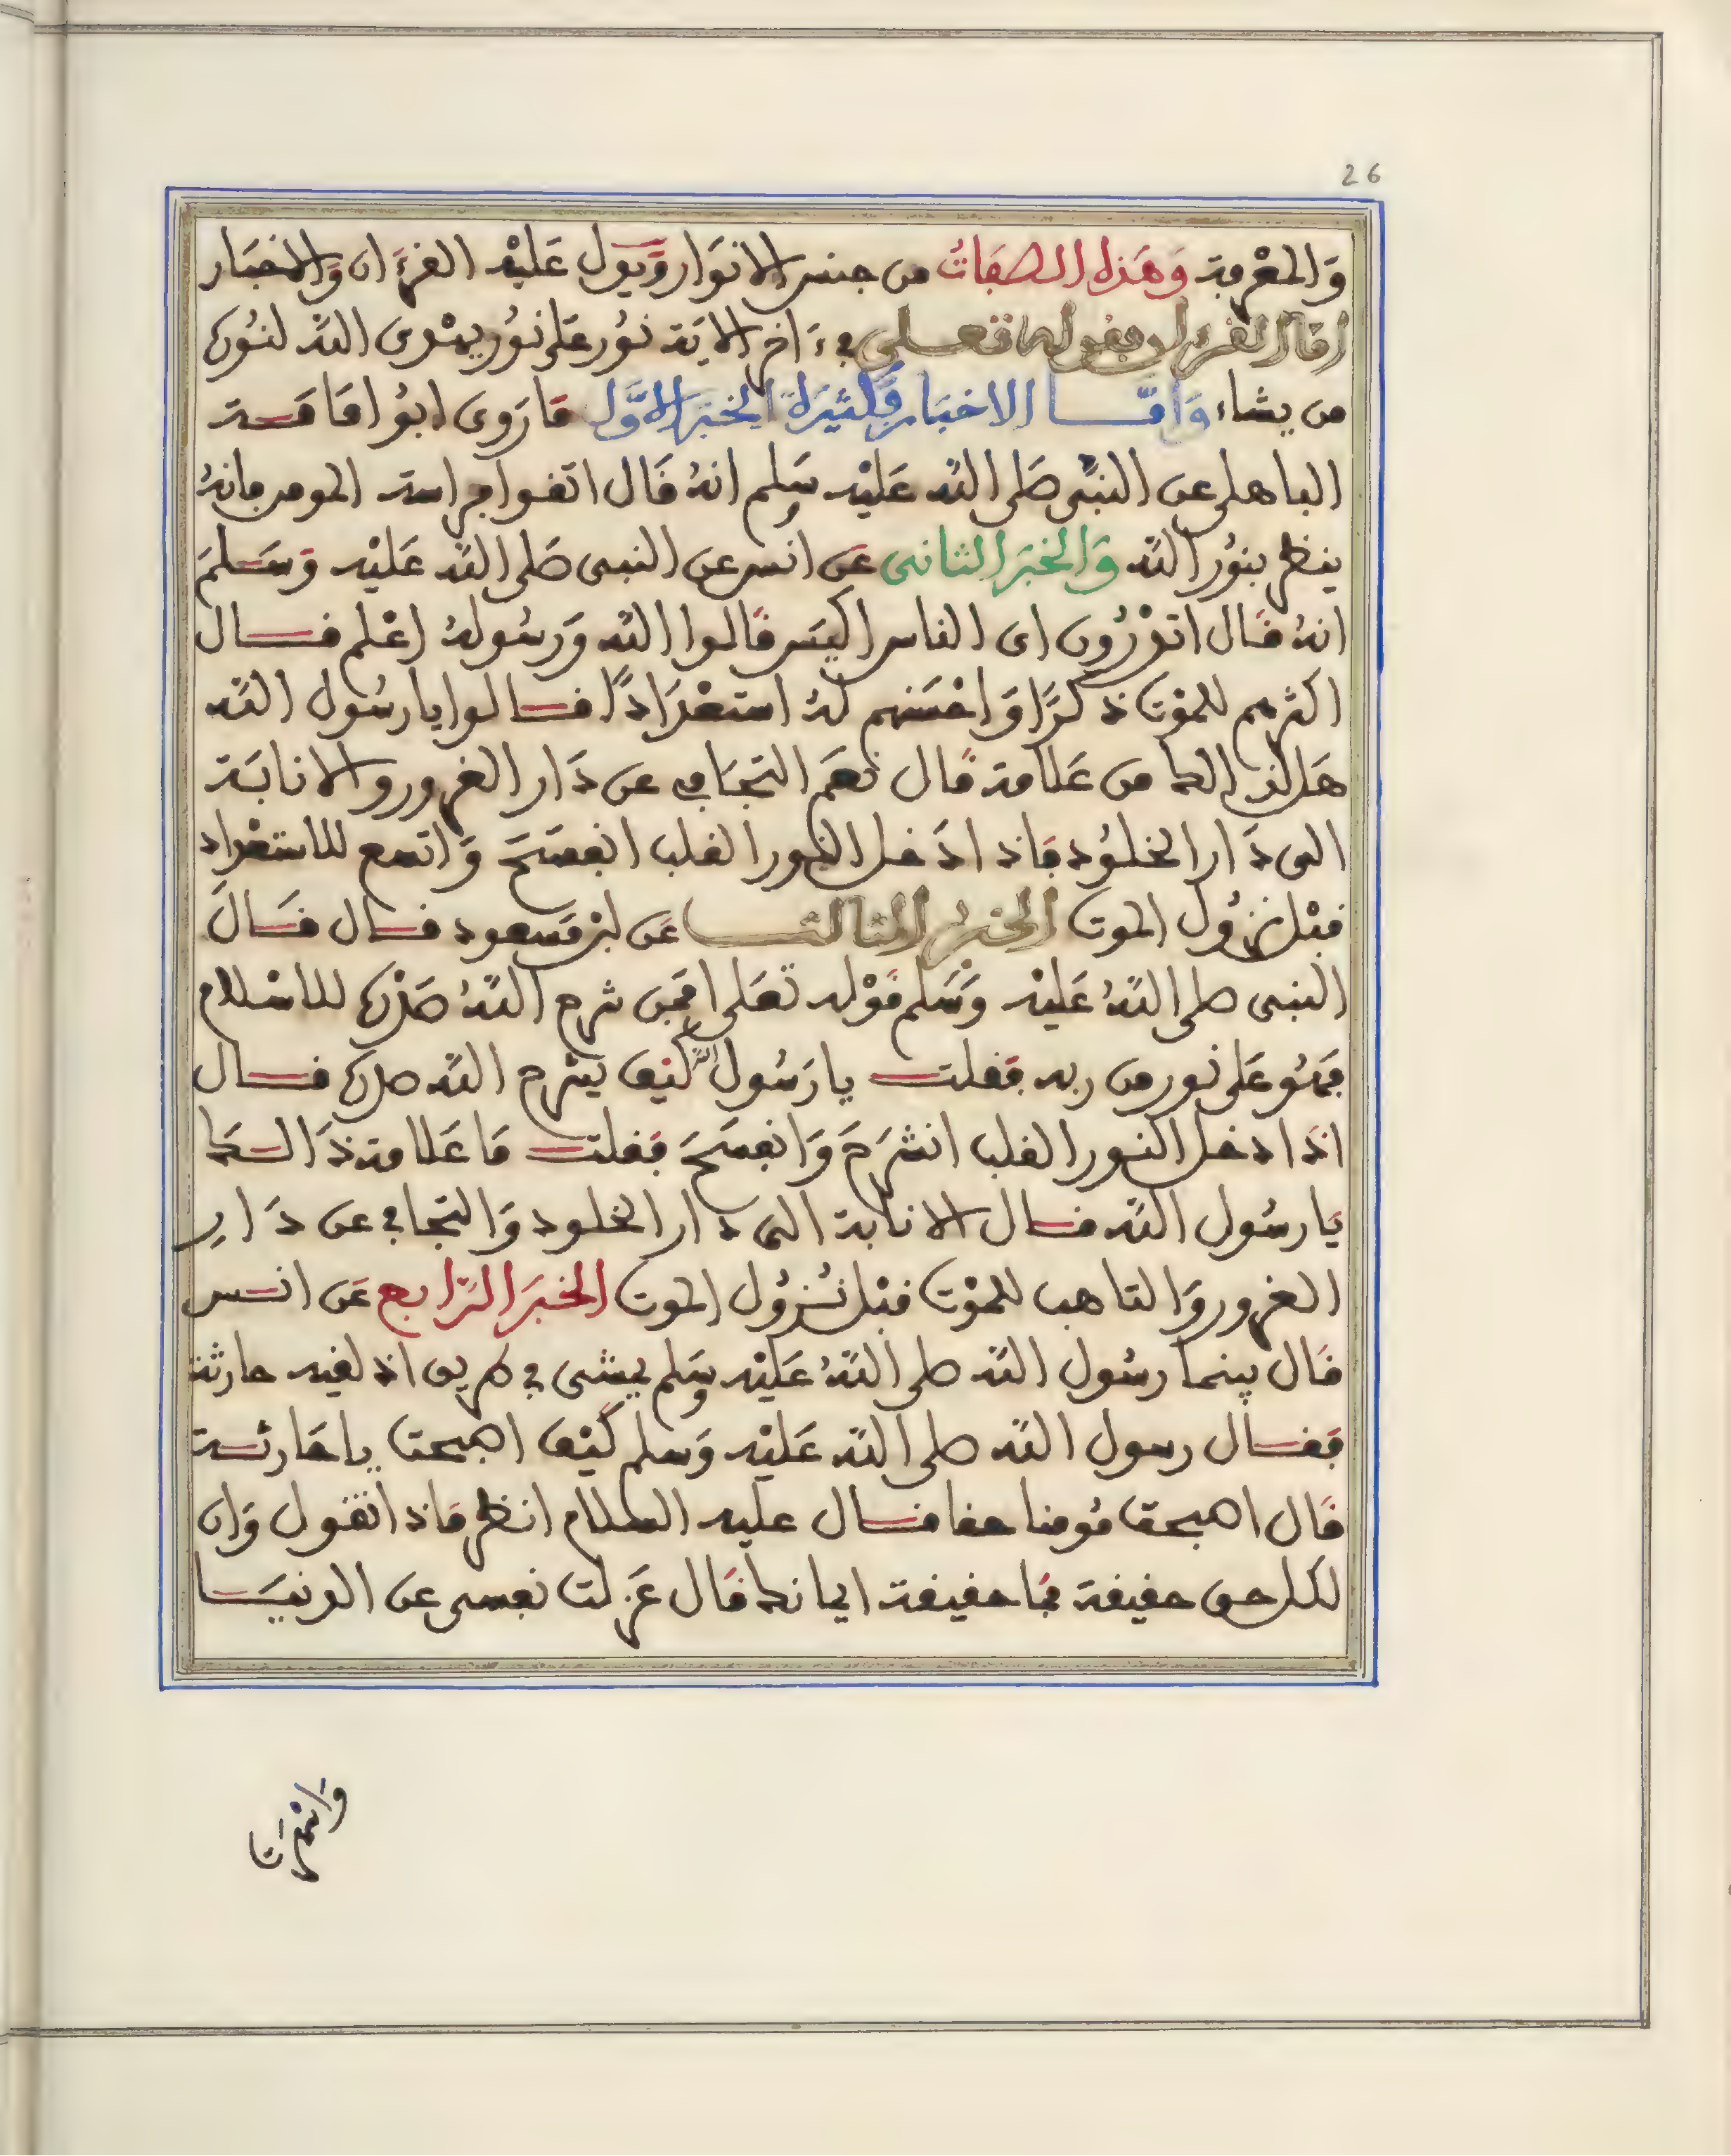 26
وَالمَعْرِفة وَهَذه الصفَاتُ من جنس الانوَار وَيدل عَليْه القرءَان وَالاخبَار
أما القرءان فقوله تعــلى في ءَاخر الاية نُور عَلى نُور يهْدى اللّه لنُوره
من يشاء وَأمّــا الاخبَار فكثيرَة الخبَر الاوَّل مَا رَوى ابُو امَامَــة
الباهلي عن النبيّ صَلى اللّه عَليْه وسَلم انهُ قَال اتقـوا فراسة المومن فانهُ
ينظر بنُور اللّه وَالخبَر الثانى عَن انس عن النبى صَلى اللّه عَليْه وَسَــلمَ
انهُ قَـال اتدْرُون اى الناس اكيَس قَالوا اللّه وَرسُولهُ اعْلم قــال
اكثرهم للمَوْت ذكرًا وَاحْسَنهم لهُ استعْدَادًا قــالوا يا رسُول اللّه
هَل لذلك من عَلامة قَال نعَم التجَافي عن دَار الغرور والانابَة
الى دَار الخلُود فاذا دَخل النور القلب انفسَحَ وَاتسع للاستعْداد
قبْل نزُول الموت الخبرُ الثالثــ عَن ابن مَسعود قـال قَـالَ
النبى صلى اللّهُ عَليْه وَسَلم قوْله تعَلى افمَن شرح اللّهُ صَدْره للاسْلام
فهُو عَلى نور من ربه فقلت يا رَسُول اللّه كيْف يشرح اللّه صدره قــال
اذَا دخل النـور القلب انشرَحَ وَانفسَحَ فقلت مَا عَلامة ذَالــك
يَا رسُول اللّه قـال الانابة الى دار الخلود وَالتجافي عن دَارِ
الغرور وَالتاهب للموْت قبْل نُزُول الموت الخبَر الرّابع عَن انــس
قَال بينما رسُول اللّه صلى اللّهُ عَليْه وسَلم يمشى في طريق اذ لقيه حارثة
فقـال رسول اللّه صلى اللّه عَليْه وَسلم كيْف اصبحت يا حَارثـة
قَال اصبحت مُومنا حقا قــال عليه السلام انظر مَاذا تقول وَان
لكل حق حقيقة فمَا حقيقة ايمانك قَال عَزلت نفسى عن الدنيَــا
وَاسْهَرَت